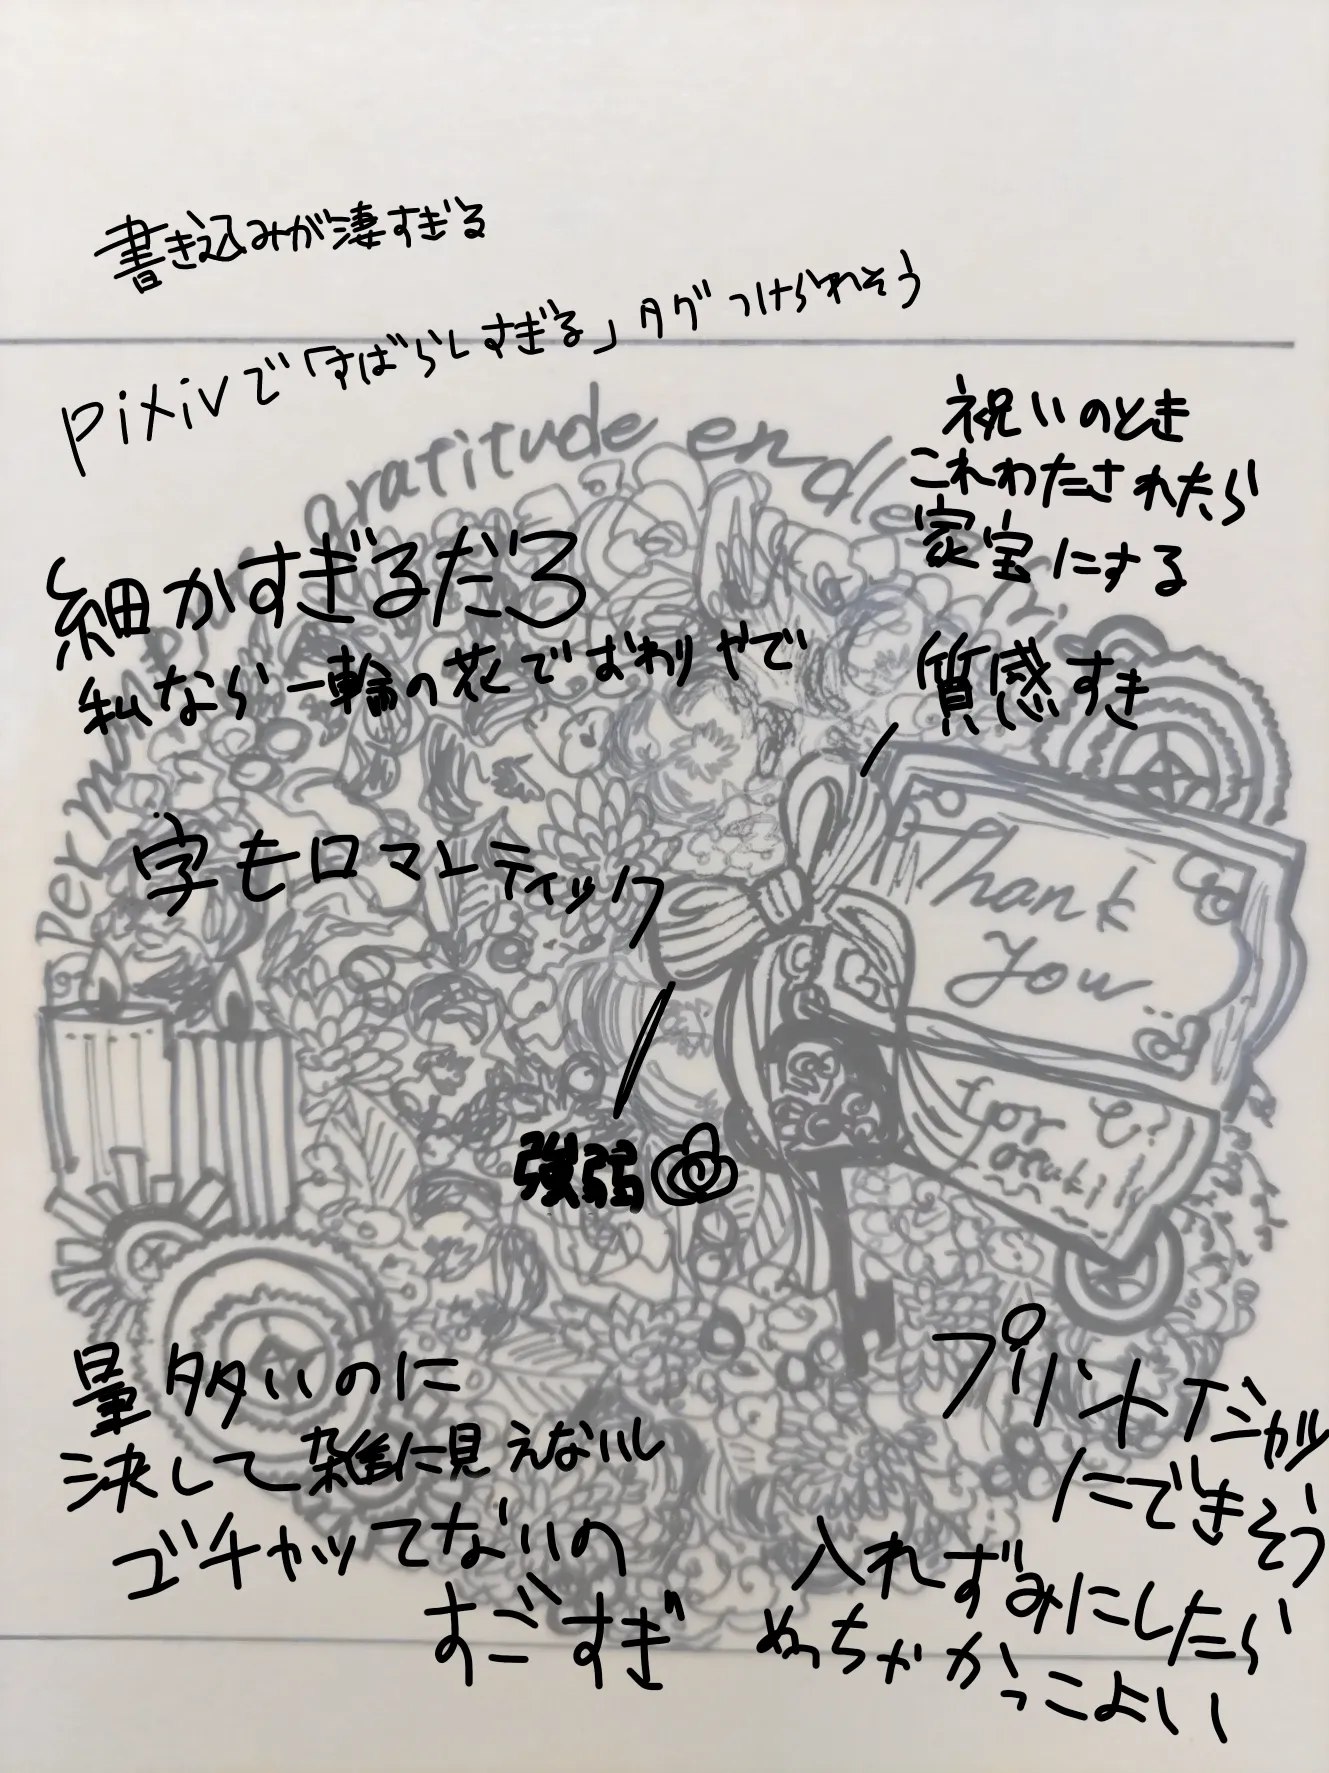 書き込みが凄すぎる
pixivで「すばらしすぎる」タグつけられそう
gratitude
祝いのとき
これわたされたら
家宝にする
細かすぎるだろ
私なら一輪の花でおわりやで
質感すき
字もロマンティック
Thank
you
for
強弱
量多いのに
決して雑に見えないし
ゴチャッてないの
すごすぎ
プリントTシャツ
にできそう
入れずみにしたら
めっちゃかっこよい